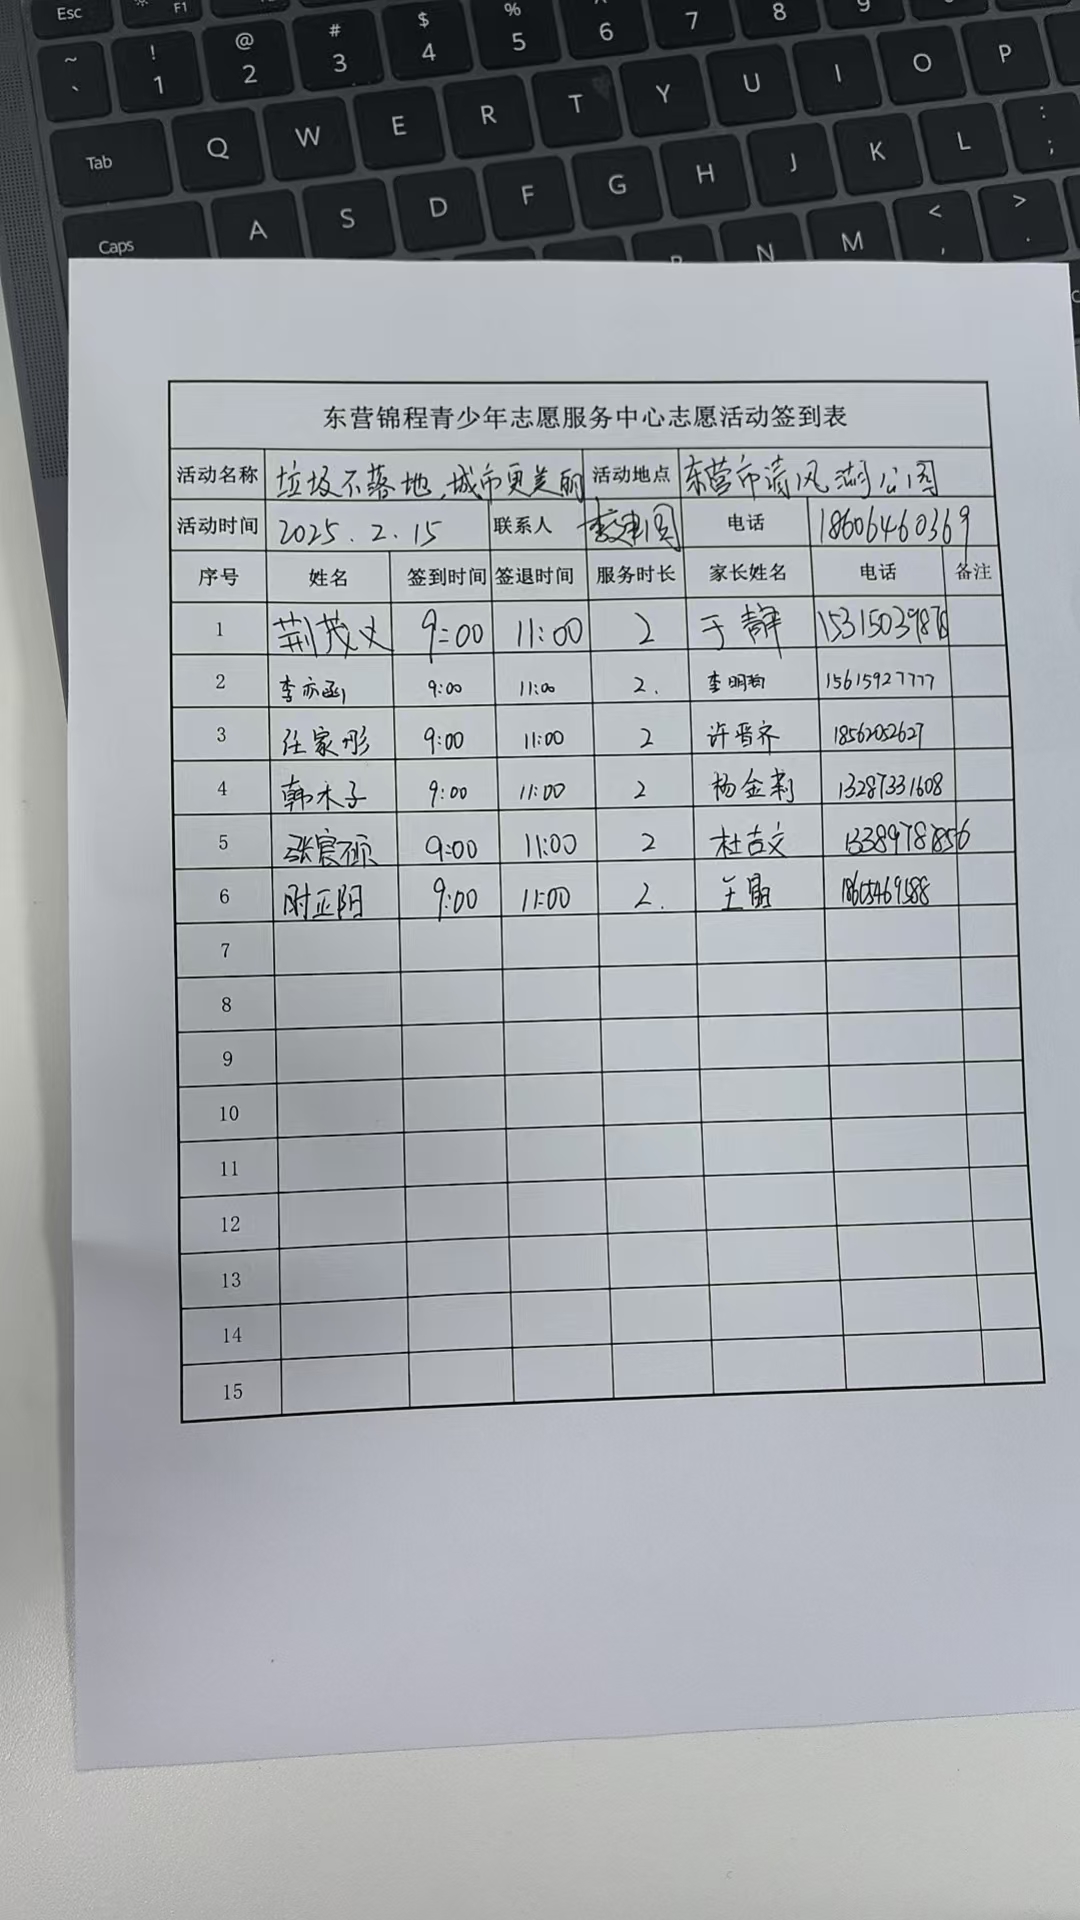 Esc F1
~ ` ! 1 @ 2 # 3 $ 4 % 5 ^ 6 7 8 9
Tab Q W E R T Y U I O P
Caps A S D F G H J K L : ;
B N M < , > .
东营锦程青少年志愿服务中心志愿活动签到表
活动名称 垃圾不落地,城市更美丽 活动地点 东营市清风湖公园
活动时间 2025.2.15 联系人 电话 18606460369
序号 姓名 签到时间 签退时间 服务时长 家长姓名 电话 备注
1 荆茂文 9:00 11:00 2 于静 15315039878
2 李亦函 9:00 11:00 2. 李明 15615927777
3 任家彤 9:00 11:00 2 许晋齐 18562052627
4 韩木子 9:00 11:00 2 杨金莉 13287331608
5 张宸硕 9:00 11:00 2 杜吉文 13389787856
6 时正阳 9:00 11:00 2. 王 18605469588
7
8
9
10
11
12
13
14
15